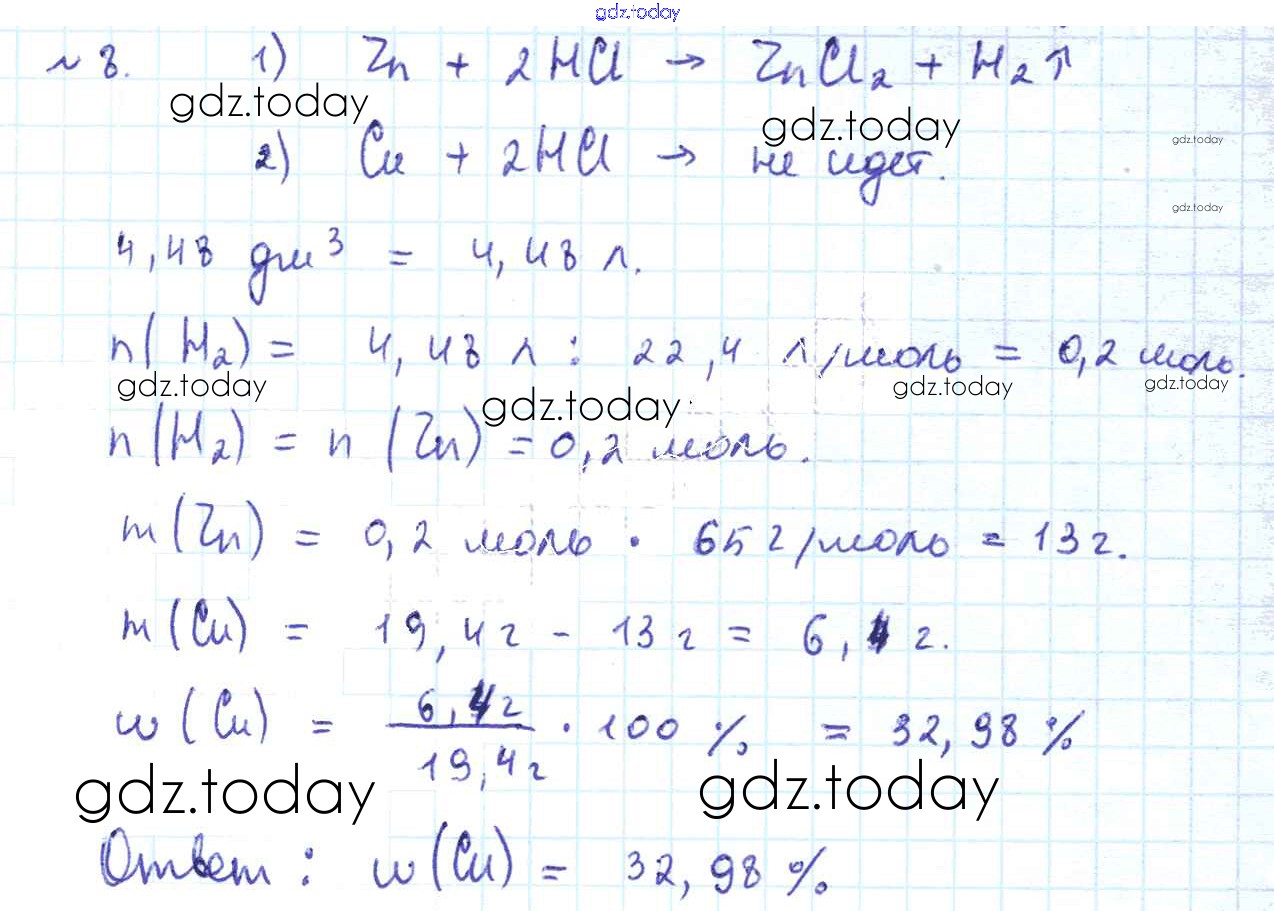 gdz.today
№ 8. 1) Zn + 2HCl → ZnCl₂ + H₂↑
gdz.today gdz.today gdz.today
2) Cu + 2HCl → не идет.
gdz.today
4,48 дм³ = 4,48 л.
n(H₂) = 4,48 л : 22,4 л/моль = 0,2 моль.
gdz.today gdz.today gdz.today gdz.today
n(H₂) = n(Zn) = 0,2 моль.
m(Zn) = 0,2 моль · 65 г/моль = 13 г.
m(Cu) = 19,4 г - 13 г = 6,4 г.
w(Cu) = 6,4 г / 19,4 г · 100 % = 32,98 %
gdz.today gdz.today
Ответ: w(Cu) = 32,98 %.